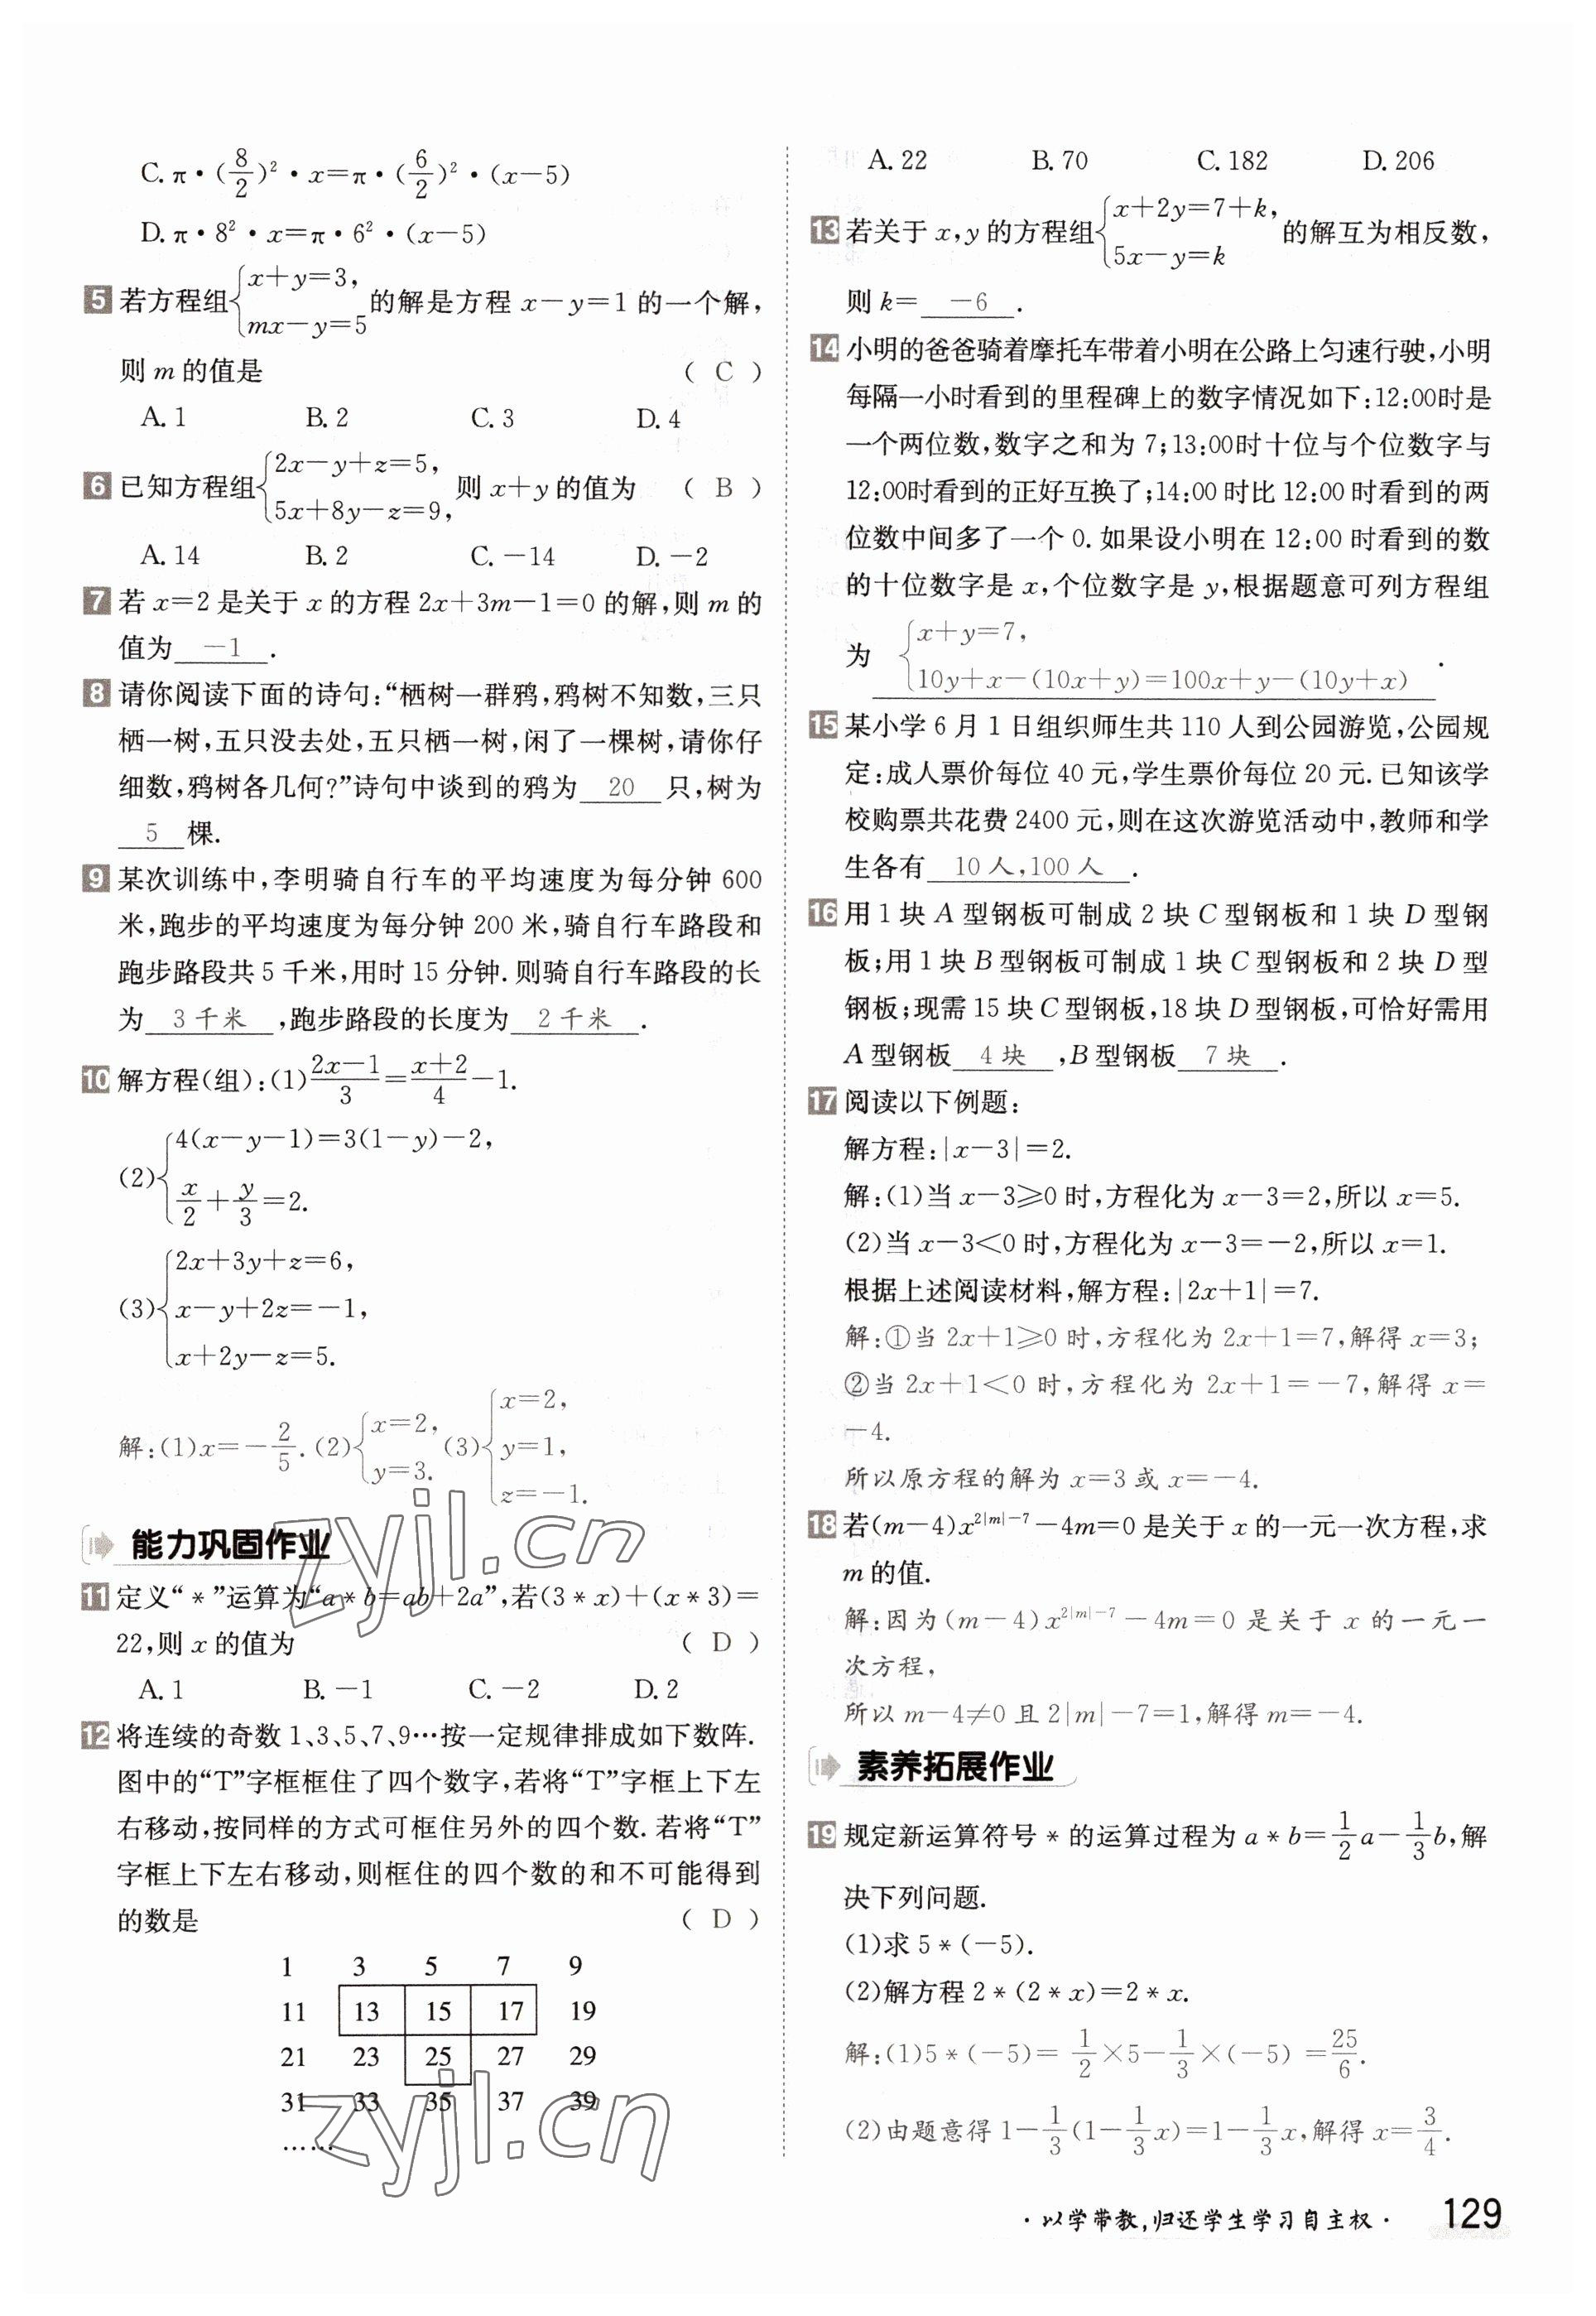 C. π·(8/2)²·x=π·(6/2)²·(x-5)
D. π·8²·x=π·6²·(x-5)
5 若方程组{x+y=3, mx-y=5 的解是方程 x-y=1 的一个解,
则 m 的值是 ( C )
A. 1 B. 2 C. 3 D. 4
6 已知方程组{2x-y+z=5, 5x+8y-z=9, 则 x+y 的值为 ( B )
A. 14 B. 2 C. -14 D. -2
7 若 x=2 是关于 x 的方程 2x+3m-1=0 的解,则 m 的
值为 -1 .
8 请你阅读下面的诗句:“栖树一群鸦,鸦树不知数,三只
栖一树,五只没去处,五只栖一树,闲了一棵树,请你仔
细数,鸦树各几何?”诗句中谈到的鸦为 20 只,树为
5 棵.
9 某次训练中,李明骑自行车的平均速度为每分钟 600
米,跑步的平均速度为每分钟 200 米,骑自行车路段和
跑步路段共 5 千米,用时 15 分钟. 则骑自行车路段的长
为 3 千米 ,跑步路段的长度为 2 千米 .
10 解方程(组):(1)(2x-1)/3=(x+2)/4-1.
(2){4(x-y-1)=3(1-y)-2,
x/2+y/3=2.
(3){2x+3y+z=6,
x-y+2z=-1,
x+2y-z=5.
解:(1)x=-2/5. (2){x=2, y=3. (3){x=2, y=1, z=-1.
能力巩固作业
11 定义“*”运算为“a*b=ab+2a”,若(3*x)+(x*3)=
22,则 x 的值为 ( D )
A. 1 B. -1 C. -2 D. 2
12 将连续的奇数 1、3、5、7、9…按一定规律排成如下数阵.
图中的“T”字框框住了四个数字,若将“T”字框上下左
右移动,按同样的方式可框住另外的四个数. 若将“T”
字框上下左右移动,则框住的四个数的和不可能得到
的数是 ( D )
1 3 5 7 9
11 13 15 17 19
21 23 25 27 29
31 33 35 37 39
……
A. 22 B. 70 C. 182 D. 206
13 若关于 x,y 的方程组{x+2y=7+k, 5x-y=k 的解互为相反数,
则 k= -6 .
14 小明的爸爸骑着摩托车带着小明在公路上匀速行驶,小明
每隔一小时看到的里程碑上的数字情况如下:12:00时是
一个两位数,数字之和为 7;13:00时十位与个位数字与
12:00时看到的正好互换了;14:00 时比 12:00 时看到的两
位数中间多了一个 0. 如果设小明在 12:00 时看到的数
的十位数字是 x,个位数字是 y,根据题意可列方程组
为 {x+y=7, 10y+x-(10x+y)=100x+y-(10y+x) .
15 某小学 6 月 1 日组织师生共 110 人到公园游览,公园规
定:成人票价每位 40 元,学生票价每位 20 元. 已知该学
校购票共花费 2400 元,则在这次游览活动中,教师和学
生各有 10 人,100 人 .
16 用 1 块 A 型钢板可制成 2 块 C 型钢板和 1 块 D 型钢
板;用 1 块 B 型钢板可制成 1 块 C 型钢板和 2 块 D 型
钢板;现需 15 块 C 型钢板,18 块 D 型钢板,可恰好需用
A 型钢板 4 块 ,B 型钢板 7 块 .
17 阅读以下例题:
解方程:|x-3|=2.
解:(1)当 x-3≥0 时,方程化为 x-3=2,所以 x=5.
(2)当 x-3<0 时,方程化为 x-3=-2,所以 x=1.
根据上述阅读材料,解方程:|2x+1|=7.
解:①当 2x+1≥0 时,方程化为 2x+1=7,解得 x=3;
②当 2x+1<0 时,方程化为 2x+1=-7,解得 x=
-4.
所以原方程的解为 x=3 或 x=-4.
18 若(m-4)x^(2|m|-7)-4m=0 是关于 x 的一元一次方程,求
m 的值.
解:因为(m-4)x^(2|m|-7)-4m=0 是关于 x 的一元一
次方程,
所以 m-4≠0 且 2|m|-7=1,解得 m=-4.
素养拓展作业
19 规定新运算符号 * 的运算过程为 a*b=1/2a-1/3b,解
决下列问题.
(1)求 5*(-5).
(2)解方程 2*(2*x)=2*x.
解:(1)5*(-5)=1/2×5-1/3×(-5)=25/6.
(2)由题意得 1-1/3(1-1/3x)=1-1/3x,解得 x=3/4.
·以学带教,归还学生学习自主权· 129
zyjl.cn
zyjl.cn